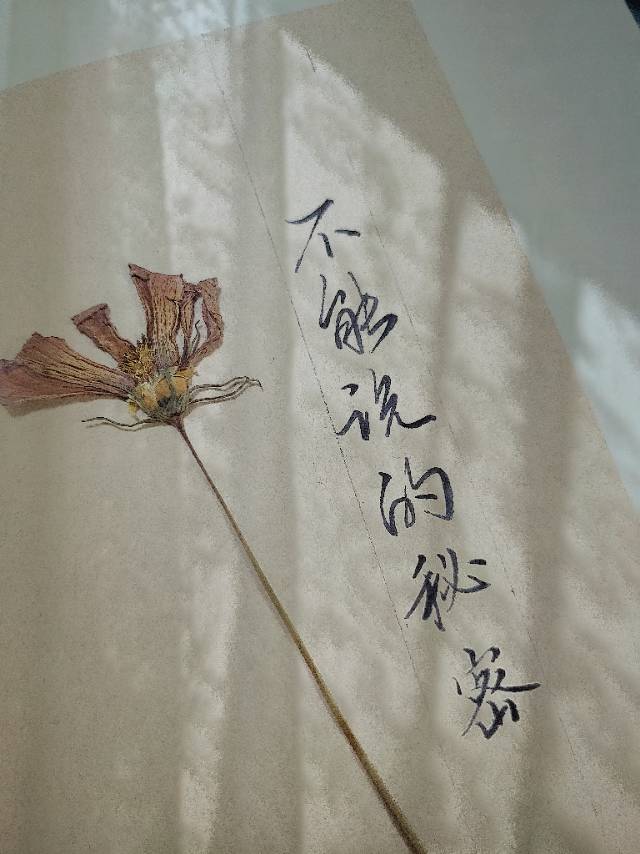 不能说的秘密